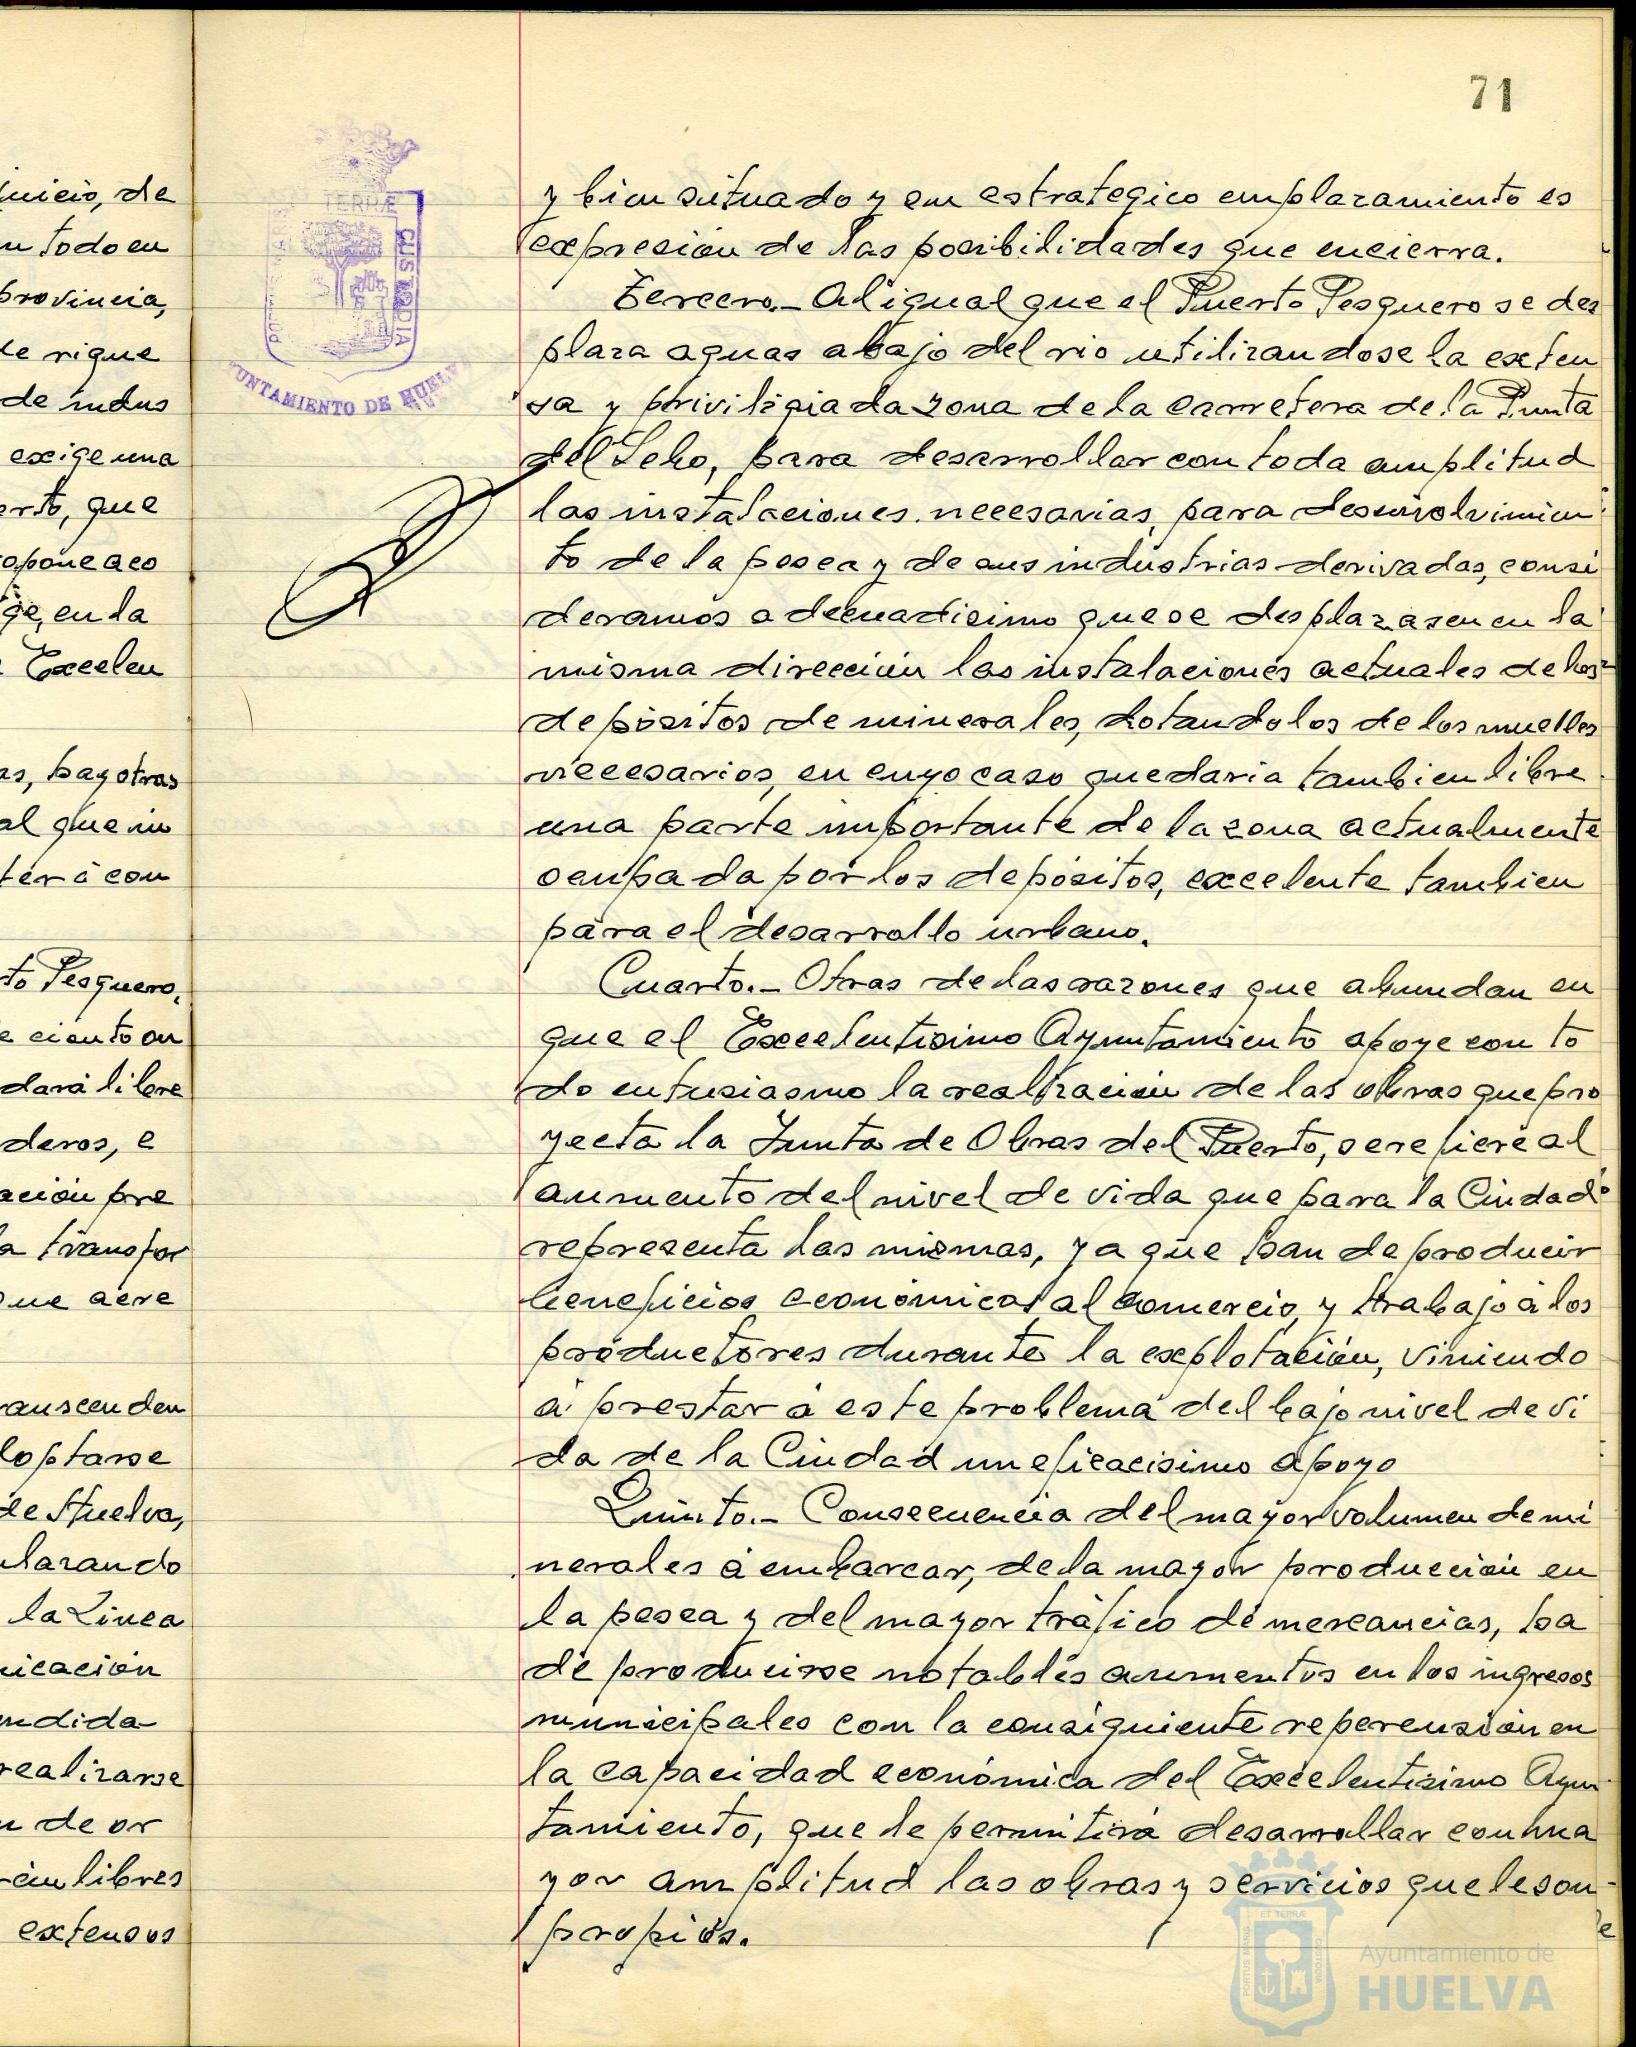 71
y bien situado y en estrategico emplazamiento es
expresión de las posibilidades que encierra.
Tercero.- Al igual que el Puerto Pesquero se des
plaza aguas abajo del rio utilizandose la exten
sa y priviligiada zona de la carretera de la Punta
del Sebo, para desarrollar con toda amplitud
las instalaciones necesarias para desenvolvimien
to de la pesca y de sus industrias derivadas, consi
deramos adecuadisimo que se desplazasen en la
misma dirección las instalaciones actuales de los
depósitos de minerales, dotandolos de los muelles
necesarios, en cuyo caso quedaria tambien libre
una parte importante de la zona actualmente
ocupada por los depósitos, excelente tambien
para el desarrollo urbano.
Cuarto.- Otras de las razones que abundan en
que el Excelentisimo Ayuntamiento apoye con to
do entusiasmo la realización de las obras que pro
yecta la Junta de Obras del Puerto, se refiere al
aumento del nivel de vida que para la Ciudad
representa las mismas, ya que han de producir
beneficios económicos al comercio, y trabajo á los
productores durante la explotación, viniendo
á prestar á este problema del bajo nivel de vi
da de la Ciudad un eficacisimo apoyo
Quinto.- Consecuencia del mayor volumen de mi
nerales á embarcar, de la mayor producción en
la pesca y del mayor tráfico de mercancias, ha
de producirse notables aumentos en los ingresos
municipales con la consiguiente repercusión en
la capacidad económica del Excelentisimo Ayun
tamiento, que le permitirá desarrollar con ma
yor amplitud las obras y servicios que le son
propios.
TERRÆ
CUSTODIA
AYUNTAMIENTO DE HUELVA
juicio, de
n todo en
provincia,
de rique
de indus
exige una
erto, que
opone aco
ge, en la
Excelen
as, hay otras
al que in
terá con
to Pesquero,
e ciento on
dará libre
deros, e
ación pre
a transfor
que acre
ranscenden
doptarse
de Huelva,
ularando
la Linea
nicación
ndida
realizarse
n de or
rán libres
extensos
Ayuntamiento de
HUELVA